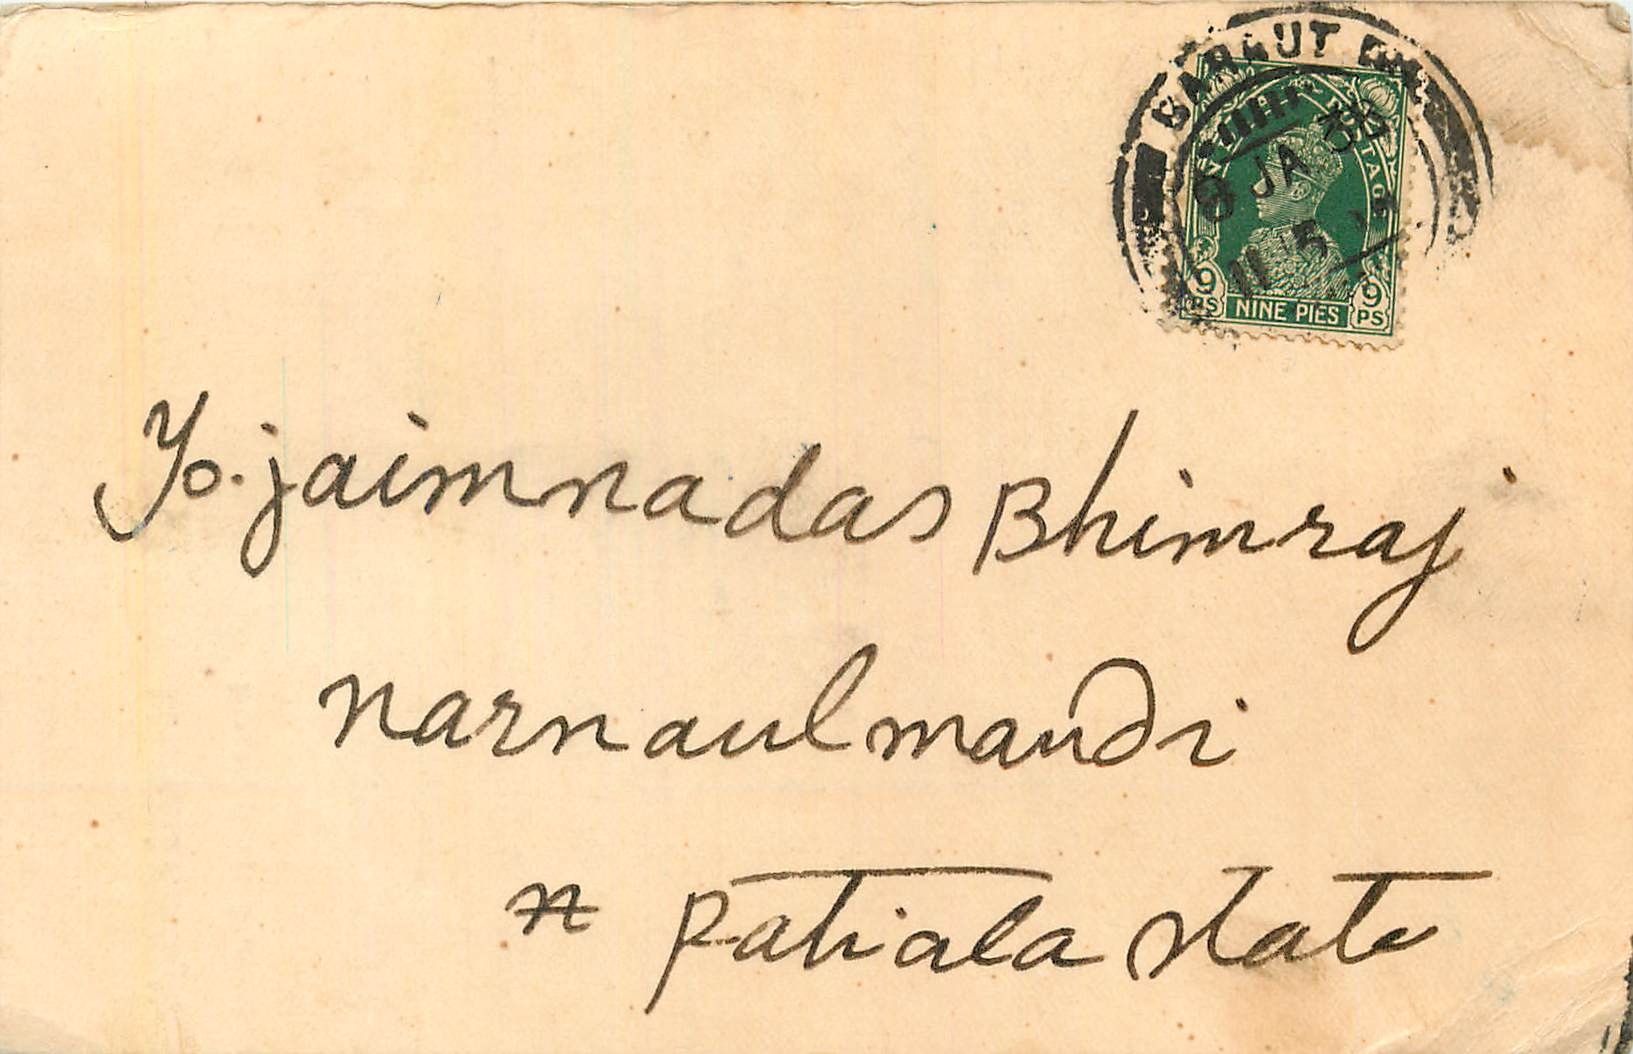 BARAUT
9 JA 39
11 15
POSTAGE
9 PS NINE PIES 9 PS
To. jaimnadas Bhimraj
narnaul mandi
patiala state